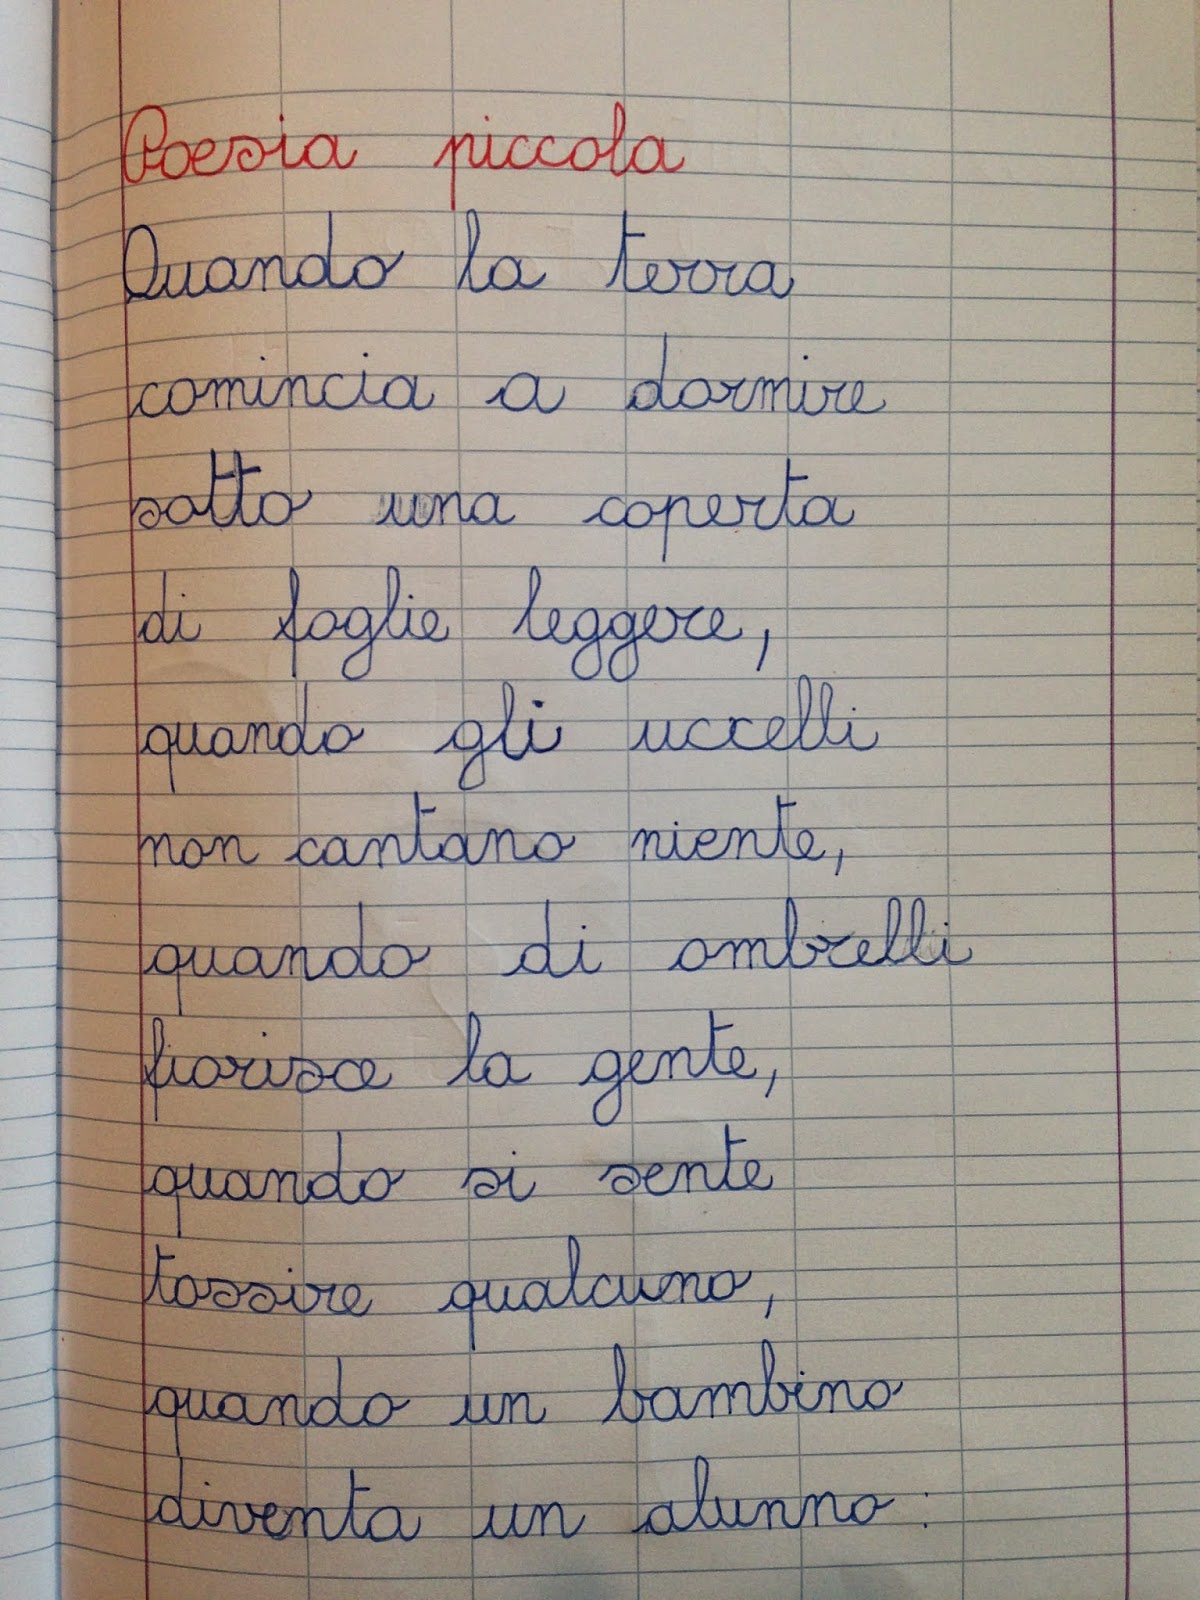 Poesia piccola
Quando la terra
comincia a dormire
sotto una coperta
di foglie leggere,
quando gli uccelli
non cantano niente,
quando di ombrelli
fiorisce la gente,
quando si sente
tossire qualcuno,
quando un bambino
diventa un alunno: